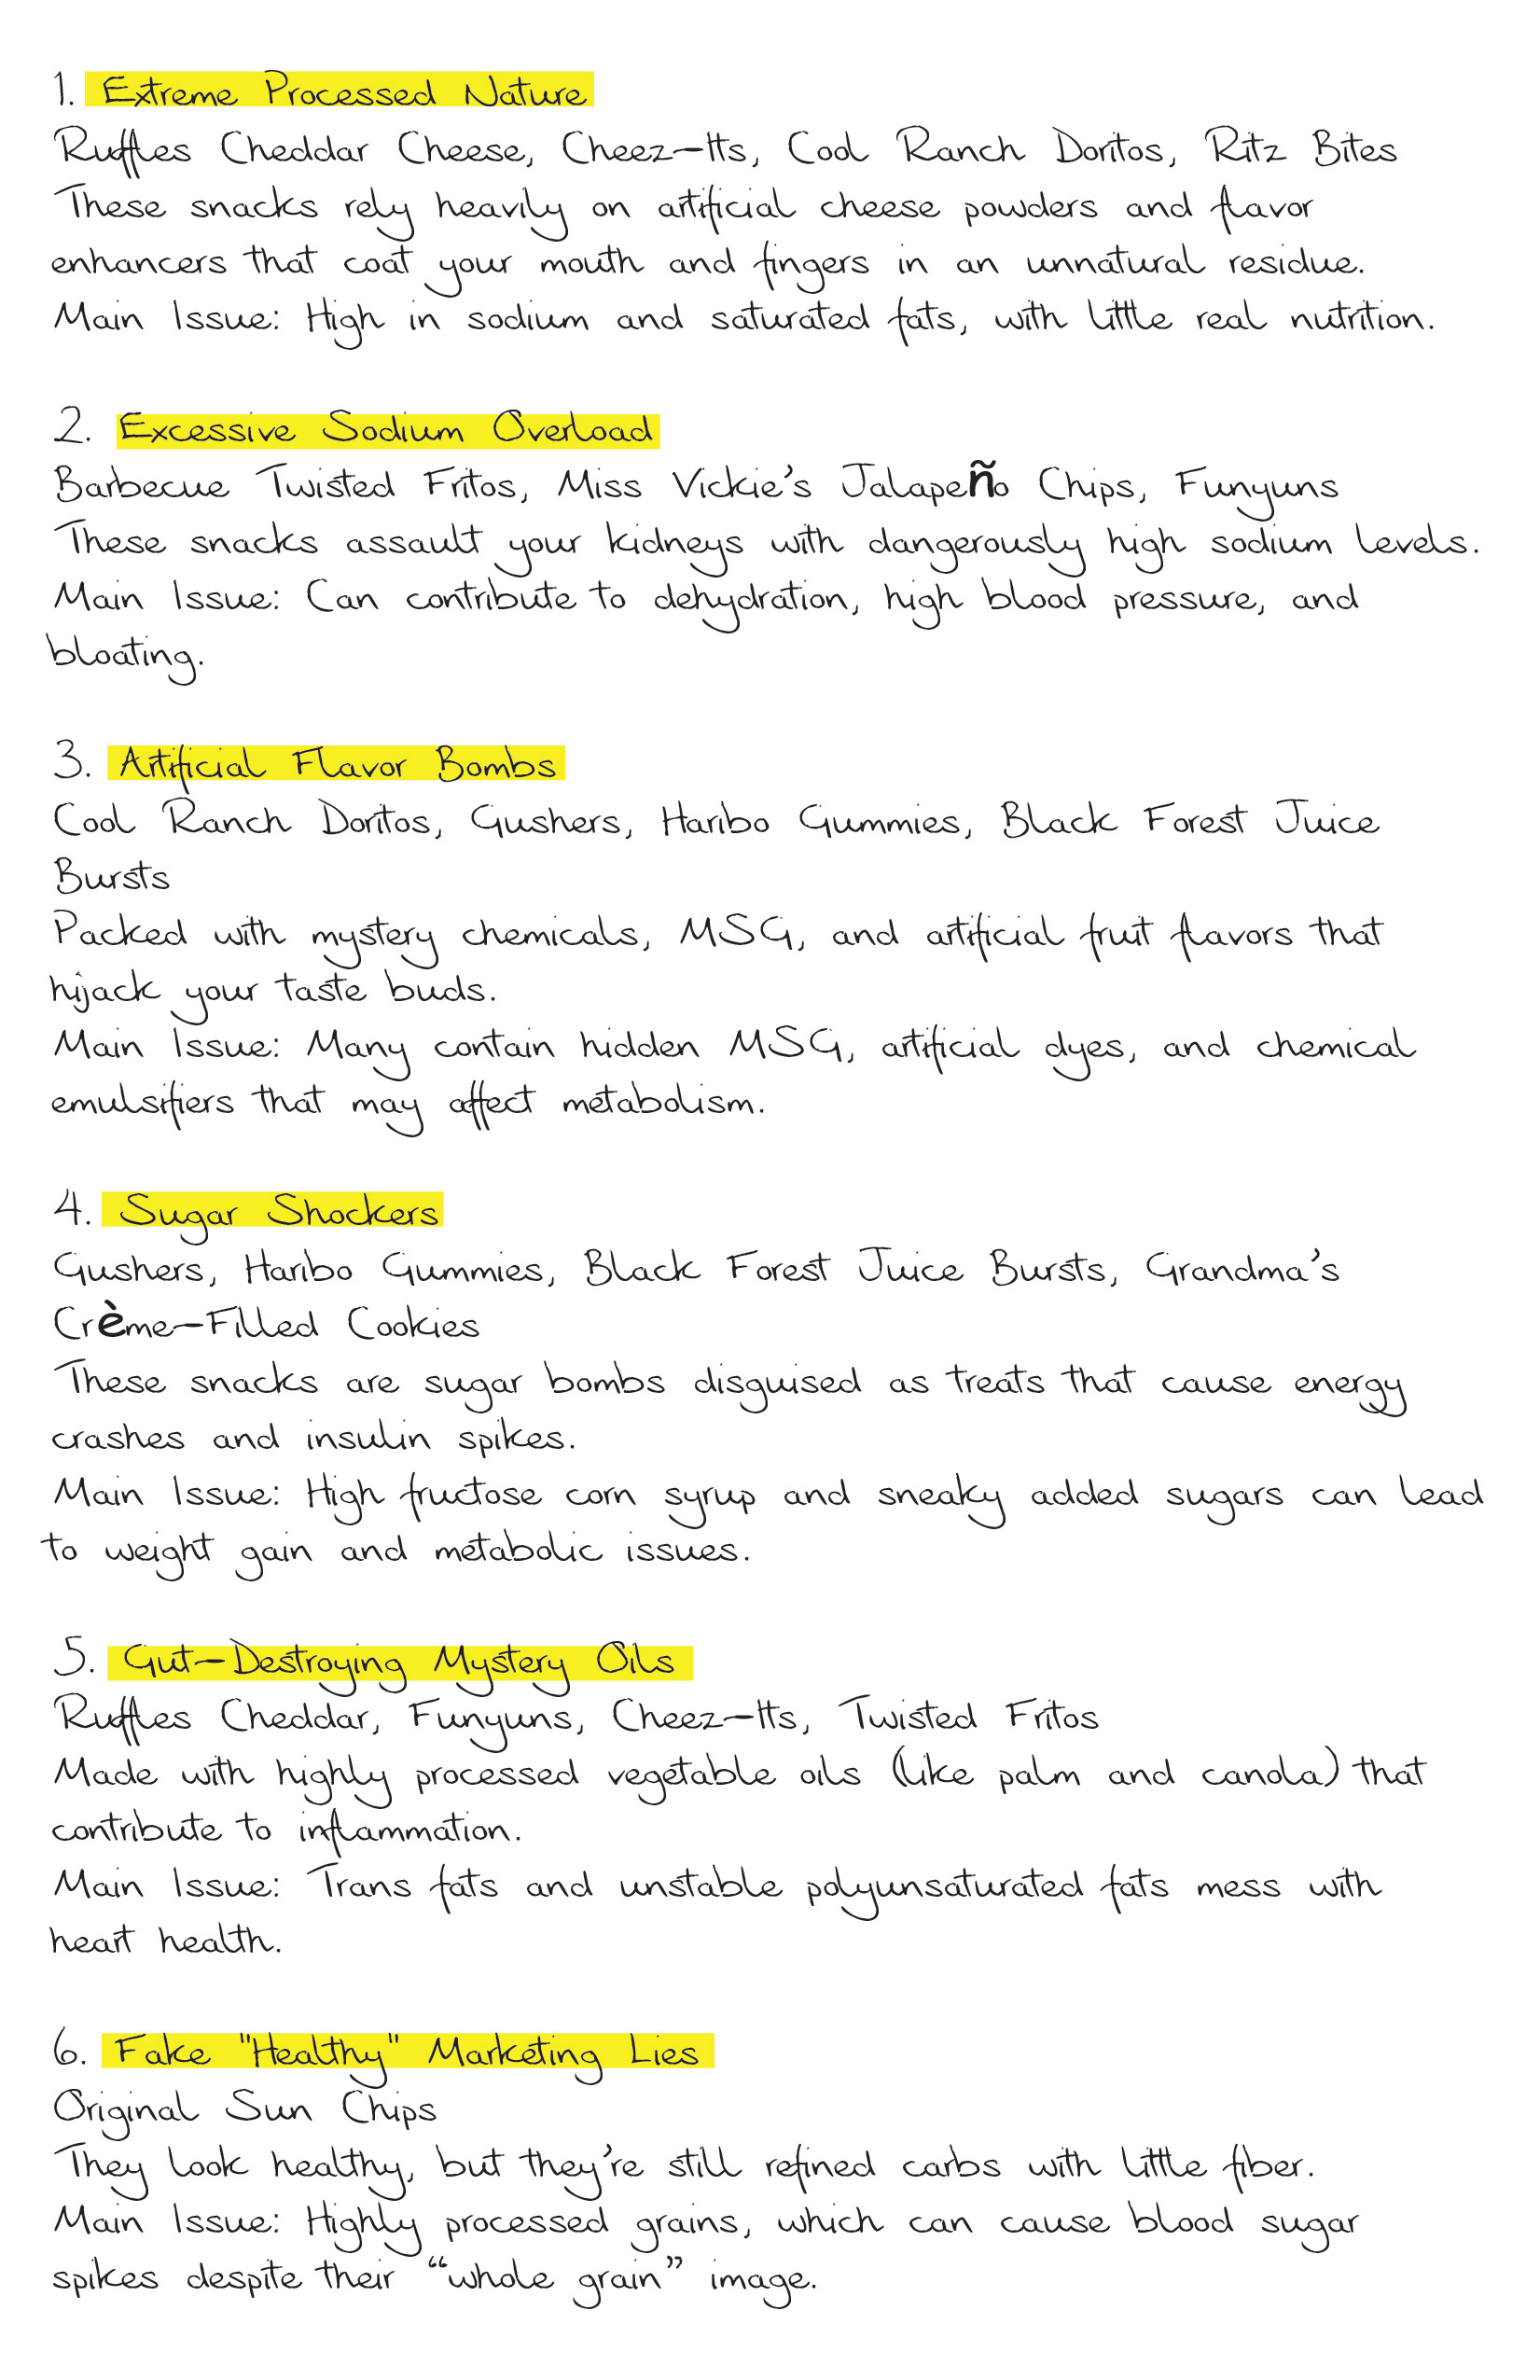 1. Extreme Processed Nature
Ruffles Cheddar Cheese, Cheez-Its, Cool Ranch Doritos, Ritz Bites
These snacks rely heavily on artificial cheese powders and flavor
enhancers that coat your mouth and fingers in an unnatural residue.
Main Issue: High in sodium and saturated fats, with little real nutrition.
2. Excessive Sodium Overload
Barbecue Twisted Fritos, Miss Vickie's Jalapeño Chips, Funyuns
These snacks assault your kidneys with dangerously high sodium levels.
Main Issue: Can contribute to dehydration, high blood pressure, and
bloating.
3. Artificial Flavor Bombs
Cool Ranch Doritos, Gushers, Haribo Gummies, Black Forest Juice
Bursts
Packed with mystery chemicals, MSG, and artificial fruit flavors that
hijack your taste buds.
Main Issue: Many contain hidden MSG, artificial dyes, and chemical
emulsifiers that may affect metabolism.
4. Sugar Shockers
Gushers, Haribo Gummies, Black Forest Juice Bursts, Grandma's
Crème-Filled Cookies
These snacks are sugar bombs disguised as treats that cause energy
crashes and insulin spikes.
Main Issue: High fructose corn syrup and sneaky added sugars can lead
to weight gain and metabolic issues.
5. Gut-Destroying Mystery Oils
Ruffles Cheddar, Funyuns, Cheez-Its, Twisted Fritos
Made with highly processed vegetable oils (like palm and canola) that
contribute to inflammation.
Main Issue: Trans fats and unstable polyunsaturated fats mess with
heart health.
6. Fake "Healthy" Marketing Lies
Original Sun Chips
They look healthy, but they're still refined carbs with little fiber.
Main Issue: Highly processed grains, which can cause blood sugar
spikes despite their “whole grain” image.